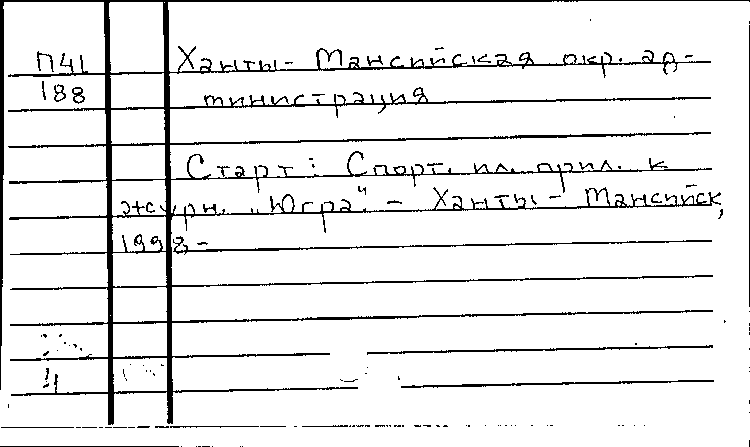 П41 Ханты- Мансийская окр. ад-
188 министрация
Старт: Спорт. ил. прил. к
журн. „Югра". - Ханты- Мансийск,
1998-
4